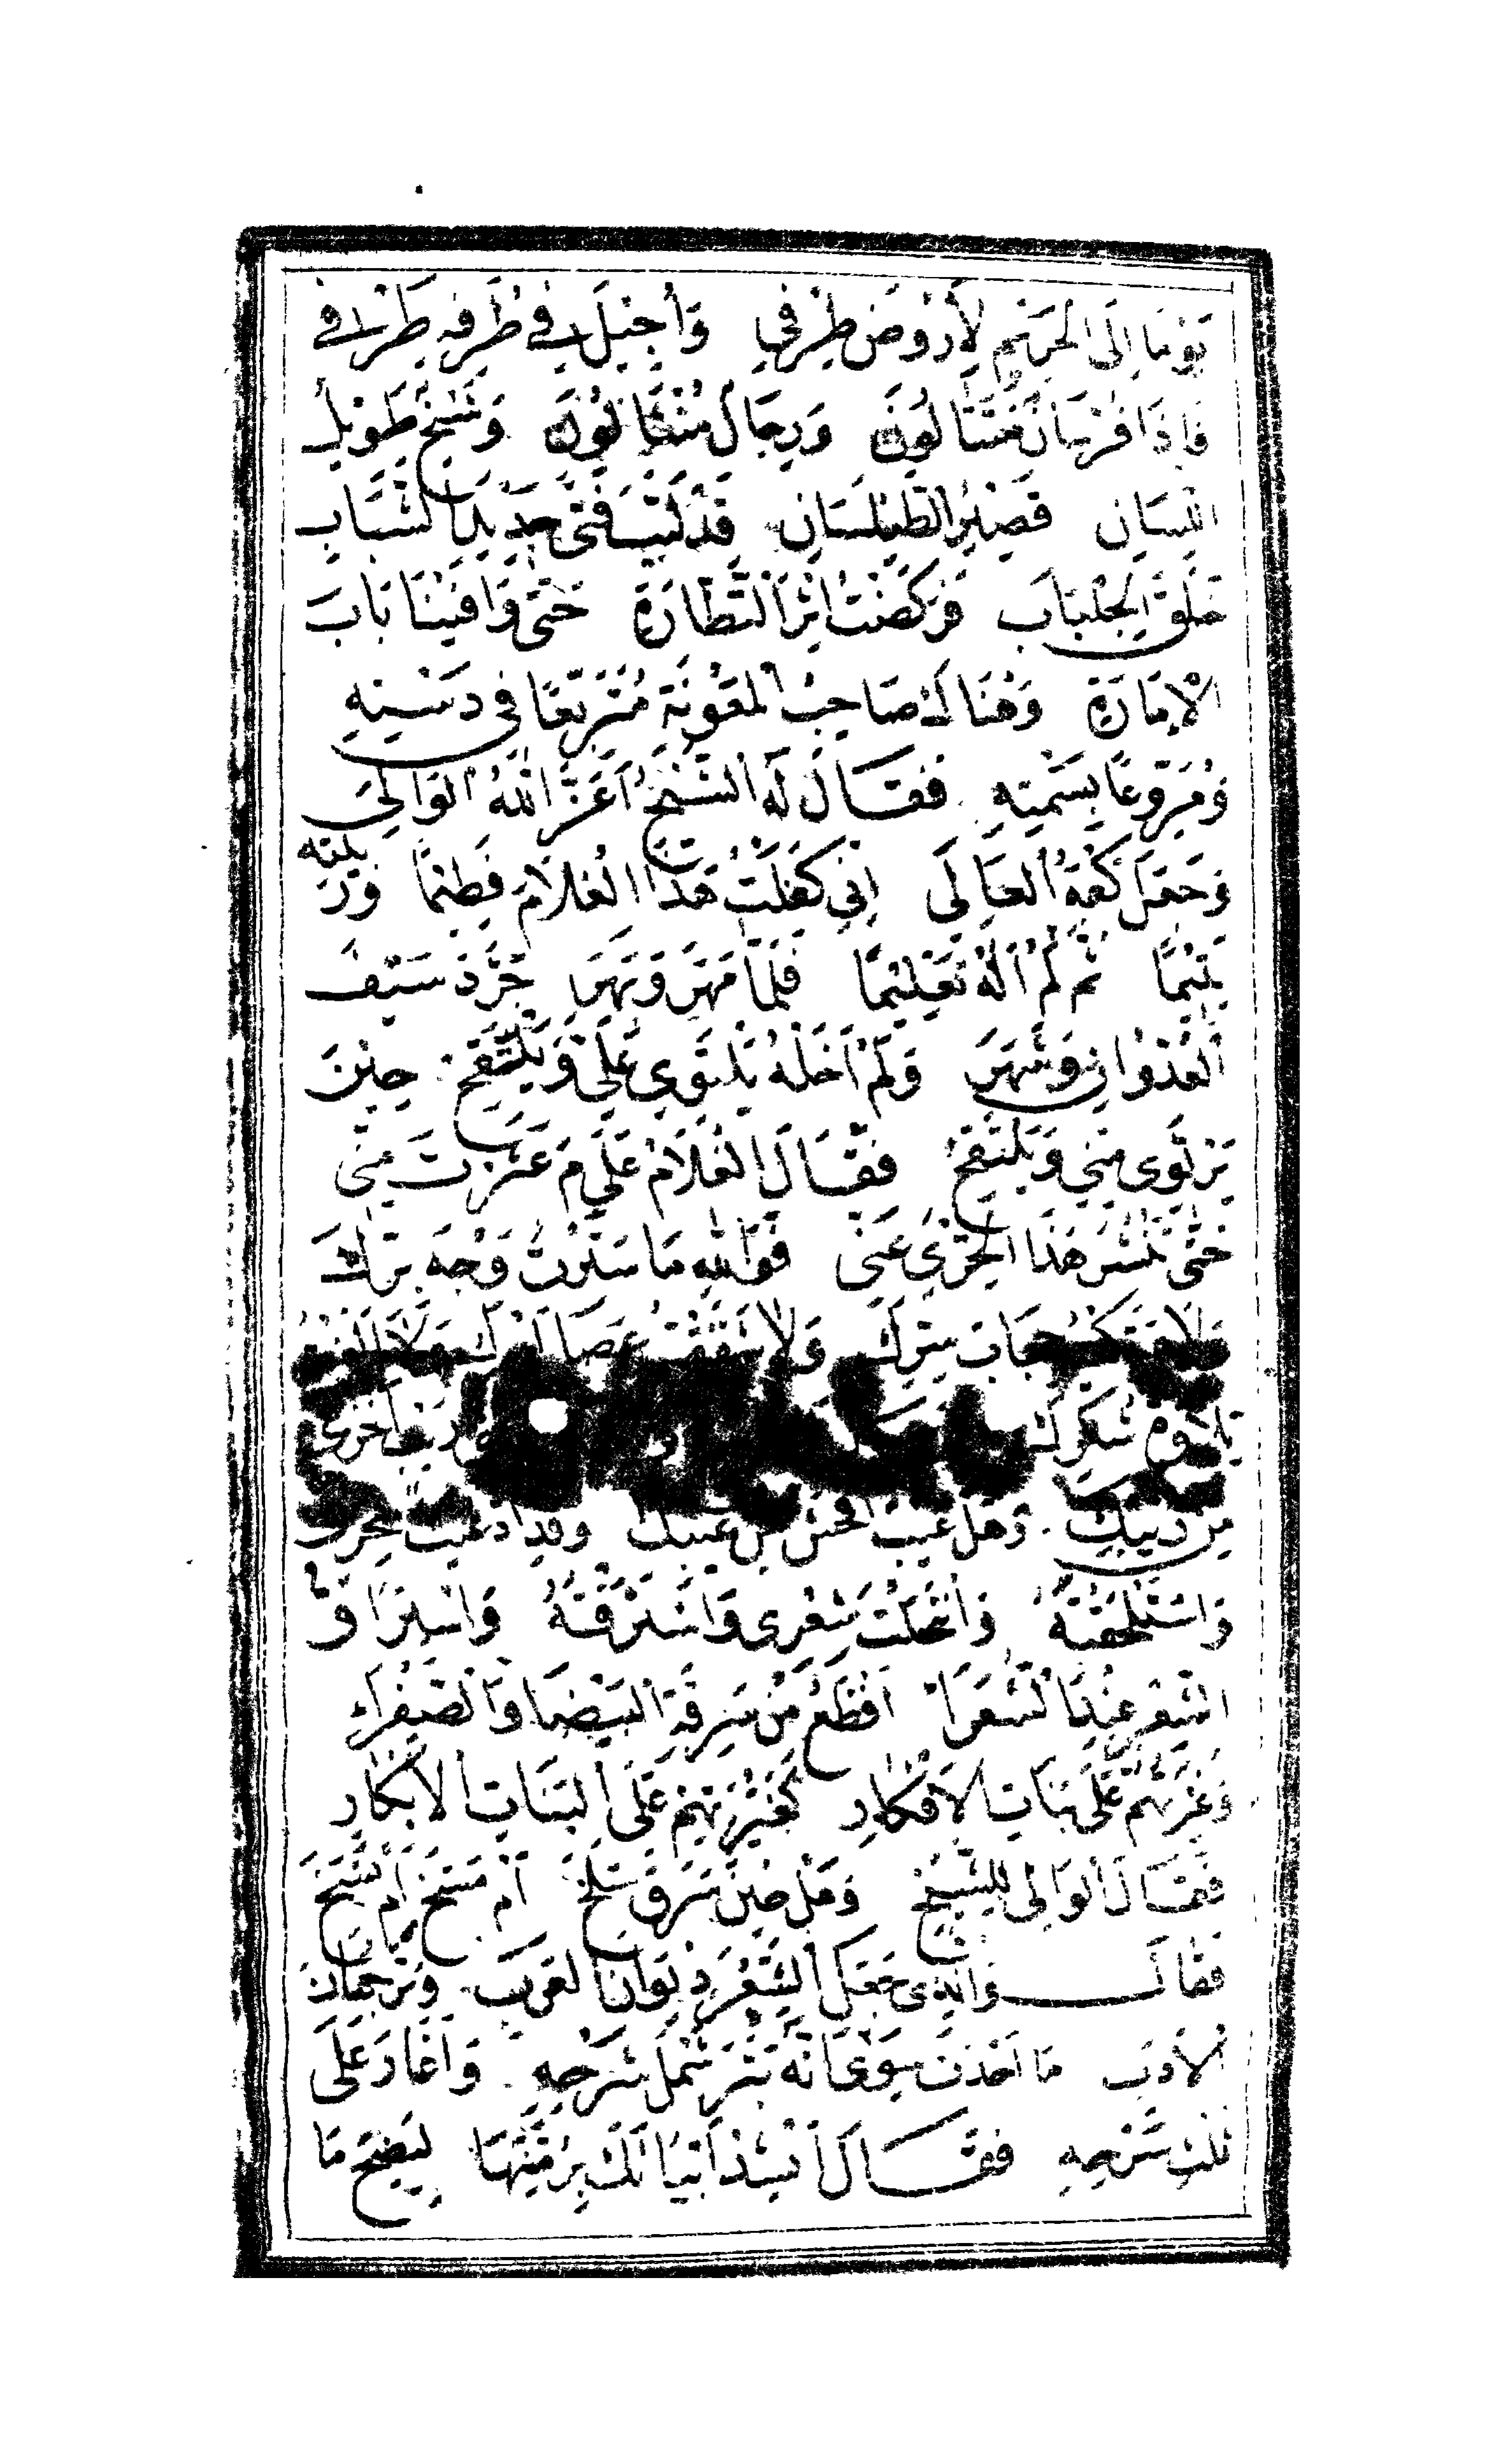 يَوْمًا إِلَى الْحَرِيمِ لِأَرُوضَ طِرْفِي وَأُجِيلَ فِي طُرُقِهِ طَرْفِي
فَإِذَا فُرْسَانٌ مُتَتَالُونَ وَرِجَالٌ مُنْثَالُونَ وَشَيْخٌ طَوِيلُ
اللِّسَانِ قَصِيرُ الطَّيْلَسَانِ قَدْ لَبَّبَ فَتًى جَدِيدَ الشَّبَابِ
خَلَقَ الْجِلْبَابِ فَرَكَضْتُ إِثْرَ النَّظَّارَةِ حَتَّى وَافَيْنَا بَابَ
الْإِمَارَةِ وَهُنَاكَ صَاحِبُ الْمَعُونَةِ مُتَرَبِّعًا فِي دَسْتِهِ
وَمُرَوِّعًا بِسَمْتِهِ فَقَالَ لَهُ الشَّيْخُ أَعَزَّ اللَّهُ الْوَالِيَ
وَجَعَلَ كَعْبَهُ الْعَالِي إِنِّي كَفَلْتُ هَذَا الْغُلَامَ فَطِيمًا وَرَبَّيْتُهُ
يَتِيمًا ثُمَّ لَمْ آلُهُ تَعْلِيمًا فَلَمَّا مَهَرَ وَبَهَرَ جَرَّدَ سَيْفَ
الْعُدْوَانِ وَشَهَرَ وَلَمْ أَخَلْهُ يَلْتَوِي عَلَيَّ وَيَتَّقِحُ حِينَ
يَرْتَوِي مِنِّي وَيَلْتَقِحُ فَقَالَ الْغُلَامُ عَلَامَ عَثَرْتَ مِنِّي
حَتَّى تَنْشُرَ هَذَا الْخِزْيَ عَنِّي فَوَاللَّهِ مَا سَتَرْتُ وَجْهَ بِرِّكَ
وَلَا هَتَكْتُ حِجَابَ سِتْرِكَ وَلَا شَقَقْتُ عَصَا أَمْرِكَ وَلَا أَلْغَيْتُ
تِلَاوَةَ شُكْرِكَ رَيْبٍ أَخْزَى
مِنْ رَيْبِكَ وَهَلْ عَيْبٌ أَفْحَشُ مِنْ عَيْبِكَ وَقَدِ ادَّعَيْتَ سِحْرِي
وَاسْتَلْحَقْتَهُ وَانْتَحَلْتَ شِعْرِي وَاسْتَرَقْتَهُ وَاسْتِرَاقُ
الشِّعْرِ عِنْدَ الشُّعَرَاءِ أَفْظَعُ مِنْ سَرِقَةِ الْبَيْضَاءِ وَالصَّفْرَاءِ
وَغَيْرَتُهُمْ عَلَى بَنَاتِ الْأَفْكَارِ كَغَيْرَتِهِمْ عَلَى الْبَنَاتِ الْأَبْكَارِ
فَقَالَ الْوَالِي لِلشَّيْخِ وَهَلْ حِينَ سَرَقَ سَلَخَ أَمْ مَسَخَ أَمْ نَسَخَ
فَقَالَ وَالَّذِي جَعَلَ الشِّعْرَ دِيوَانَ الْعَرَبِ وَتَرْجُمَانَ
الْأَدَبِ مَا أَحْدَثَ سِوَى أَنَّهُ بَتَرَ شَمْلَ شَرْحِهِ وَأَغَارَ عَلَى
ثُلُثَيْ سَرْحِهِ فَقَالَ أَنْشِدْ أَبْيَاتَكَ بِرُمَّتِهَا لِيَتَّضِحَ مَا